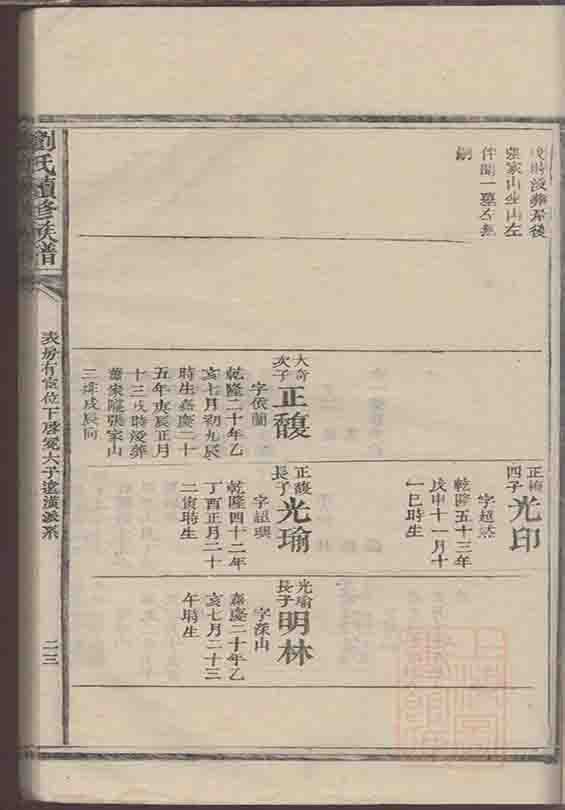 戌時沒葬屋後
張家山坐山左
嗣
正楨四子
光印
字超然
乾隆五十三年
戊申十一月十
一巳時生
大奇次子
正馥
字依蘭
乾隆二十年乙
亥七月初九辰
時生嘉慶二十
五年庚辰正月
十三戌時沒葬
蕭家隴張家山
正馥長子
光瑜
乾隆四十二年
丁酉正月二十
二寅時生
光瑜長子
明林
字深山
嘉慶二十年乙
亥七月二十三
午時生
劉氏續修族譜
二三